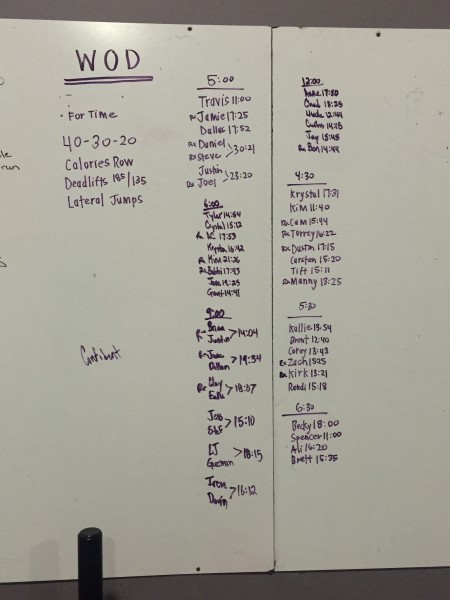 WOD
· For Time
40-30-20
Calories Row
Deadlifts 185/135
Lateral Jumps
5:00
Travis 11:00
Rx Jamie 17:25
Dallas 17:52
Rx Daniel
Rx Steve >30:21
Justin
Rx Joel >23:20
6:00
Tyler 14:54
Crystal 15:12
17:53
Krystn 16:42
Rx Kim 21:26
Rx Bobbi 17:43
Grant 14:41
9:00
Brian
Justin >14:04
Dillon >19:34
>18:07
>15:10
LJ
Guzman >18:15
Irene
Devin >16:12
12:00
17:50
Chad 13:25
Wade 12:44
Curtis 14:28
Jay 15:45
Rx Ben 14:44
4:30
Krystal 17:31
Kim 11:40
Rx Cam 15:44
Rx Torrey 16:22
Rx Dustin 17:15
Carsten 15:20
Tift 15:11
Rx Manny 13:25
5:30
Kallie 13:54
Brent 12:40
Corey 13:43
Rx Zach 15:25
Rx Kirk 13:21
Randi 15:18
6:30
Becky 18:00
Spencer 11:00
Ali 16:20
Brett 15:35